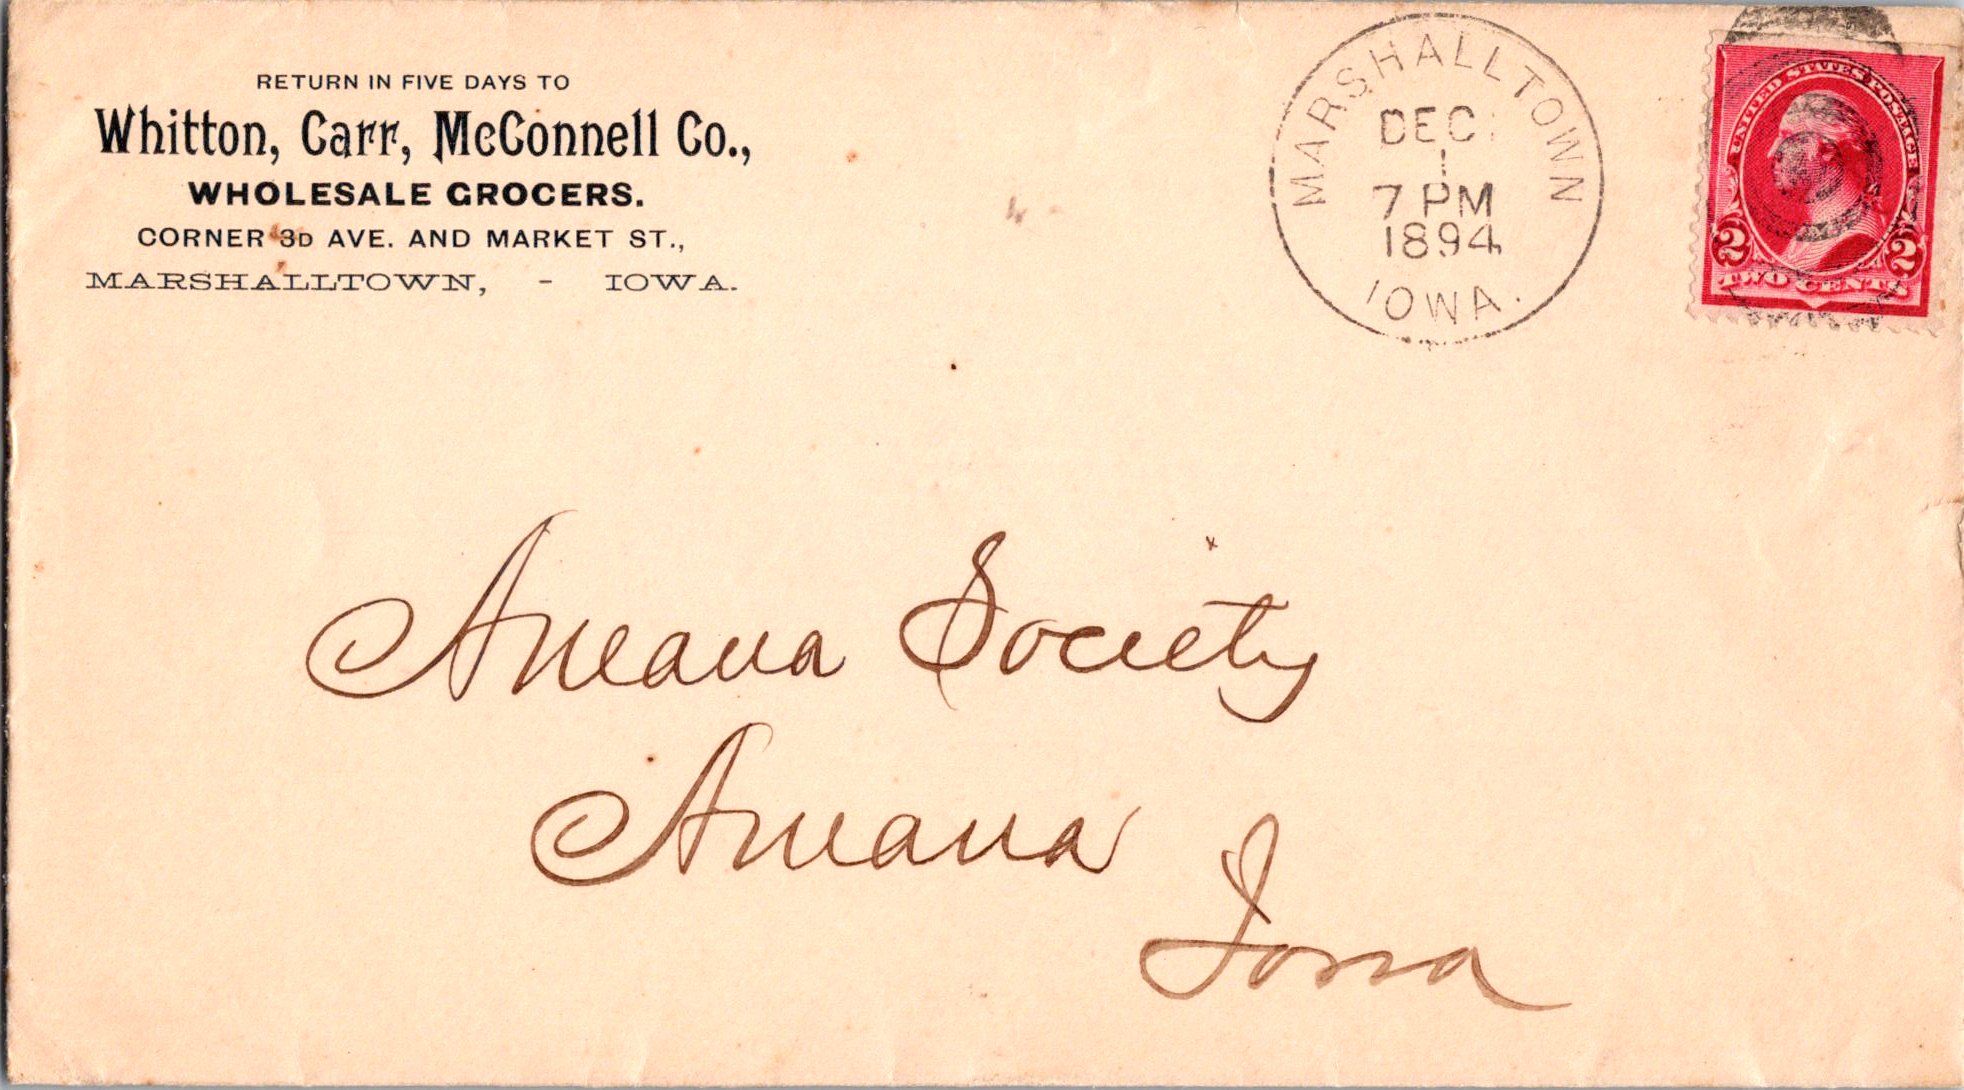 RETURN IN FIVE DAYS TO
Whitton, Carr, McConnell Co.,
WHOLESALE GROCERS.
CORNER 3D AVE. AND MARKET ST.,
MARSHALLTOWN, - IOWA.
MARSHALLTOWN
DEC
1
7 PM
1894
IOWA.
UNITED STATES POSTAGE
2 2
TWO CENTS
Amana Society
Amana
Iowa